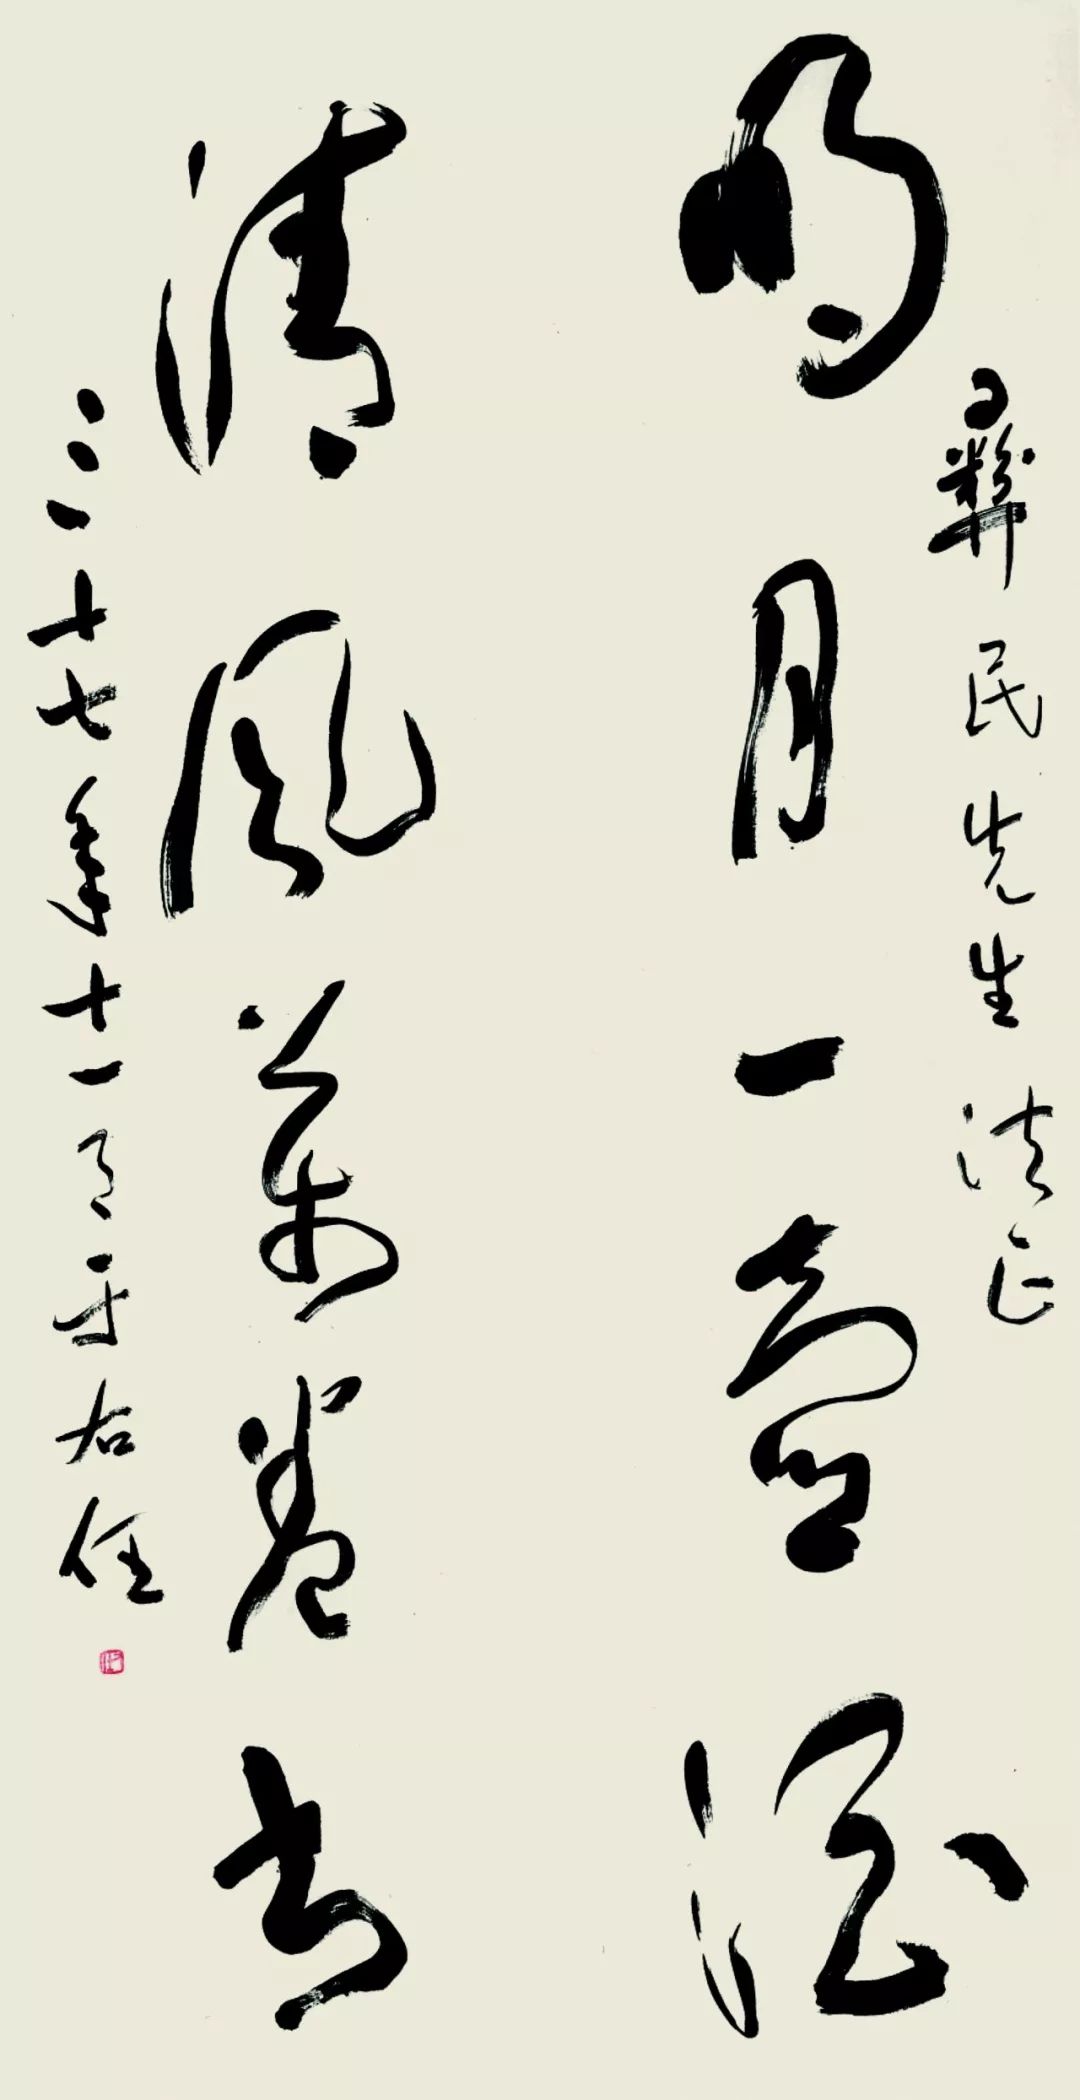 彝民先生 法正
明月一壺酒
清風萬卷書
三十七年十一月 于右任